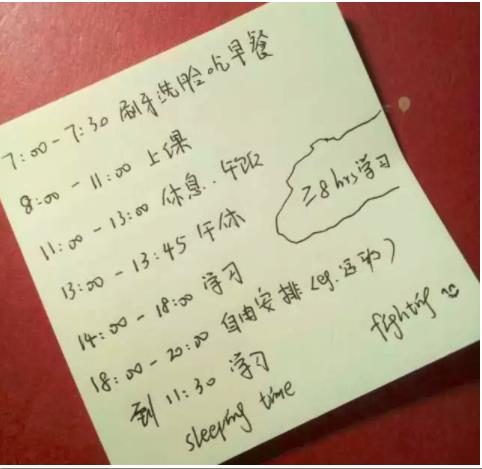 7:00-7:30 刷牙洗脸吃早餐
8:00-11:00 上课
11:00-13:00 休息..午饭
≥8hrs学习
13:00-13:45 午休
14:00-18:00 学习
18:00-20:00 自由安排(eg.运动)
到11:30 学习
fighting
sleeping time